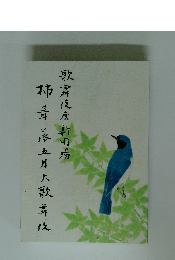 歌舞伎座新開場
柿葺落五月大歌舞伎